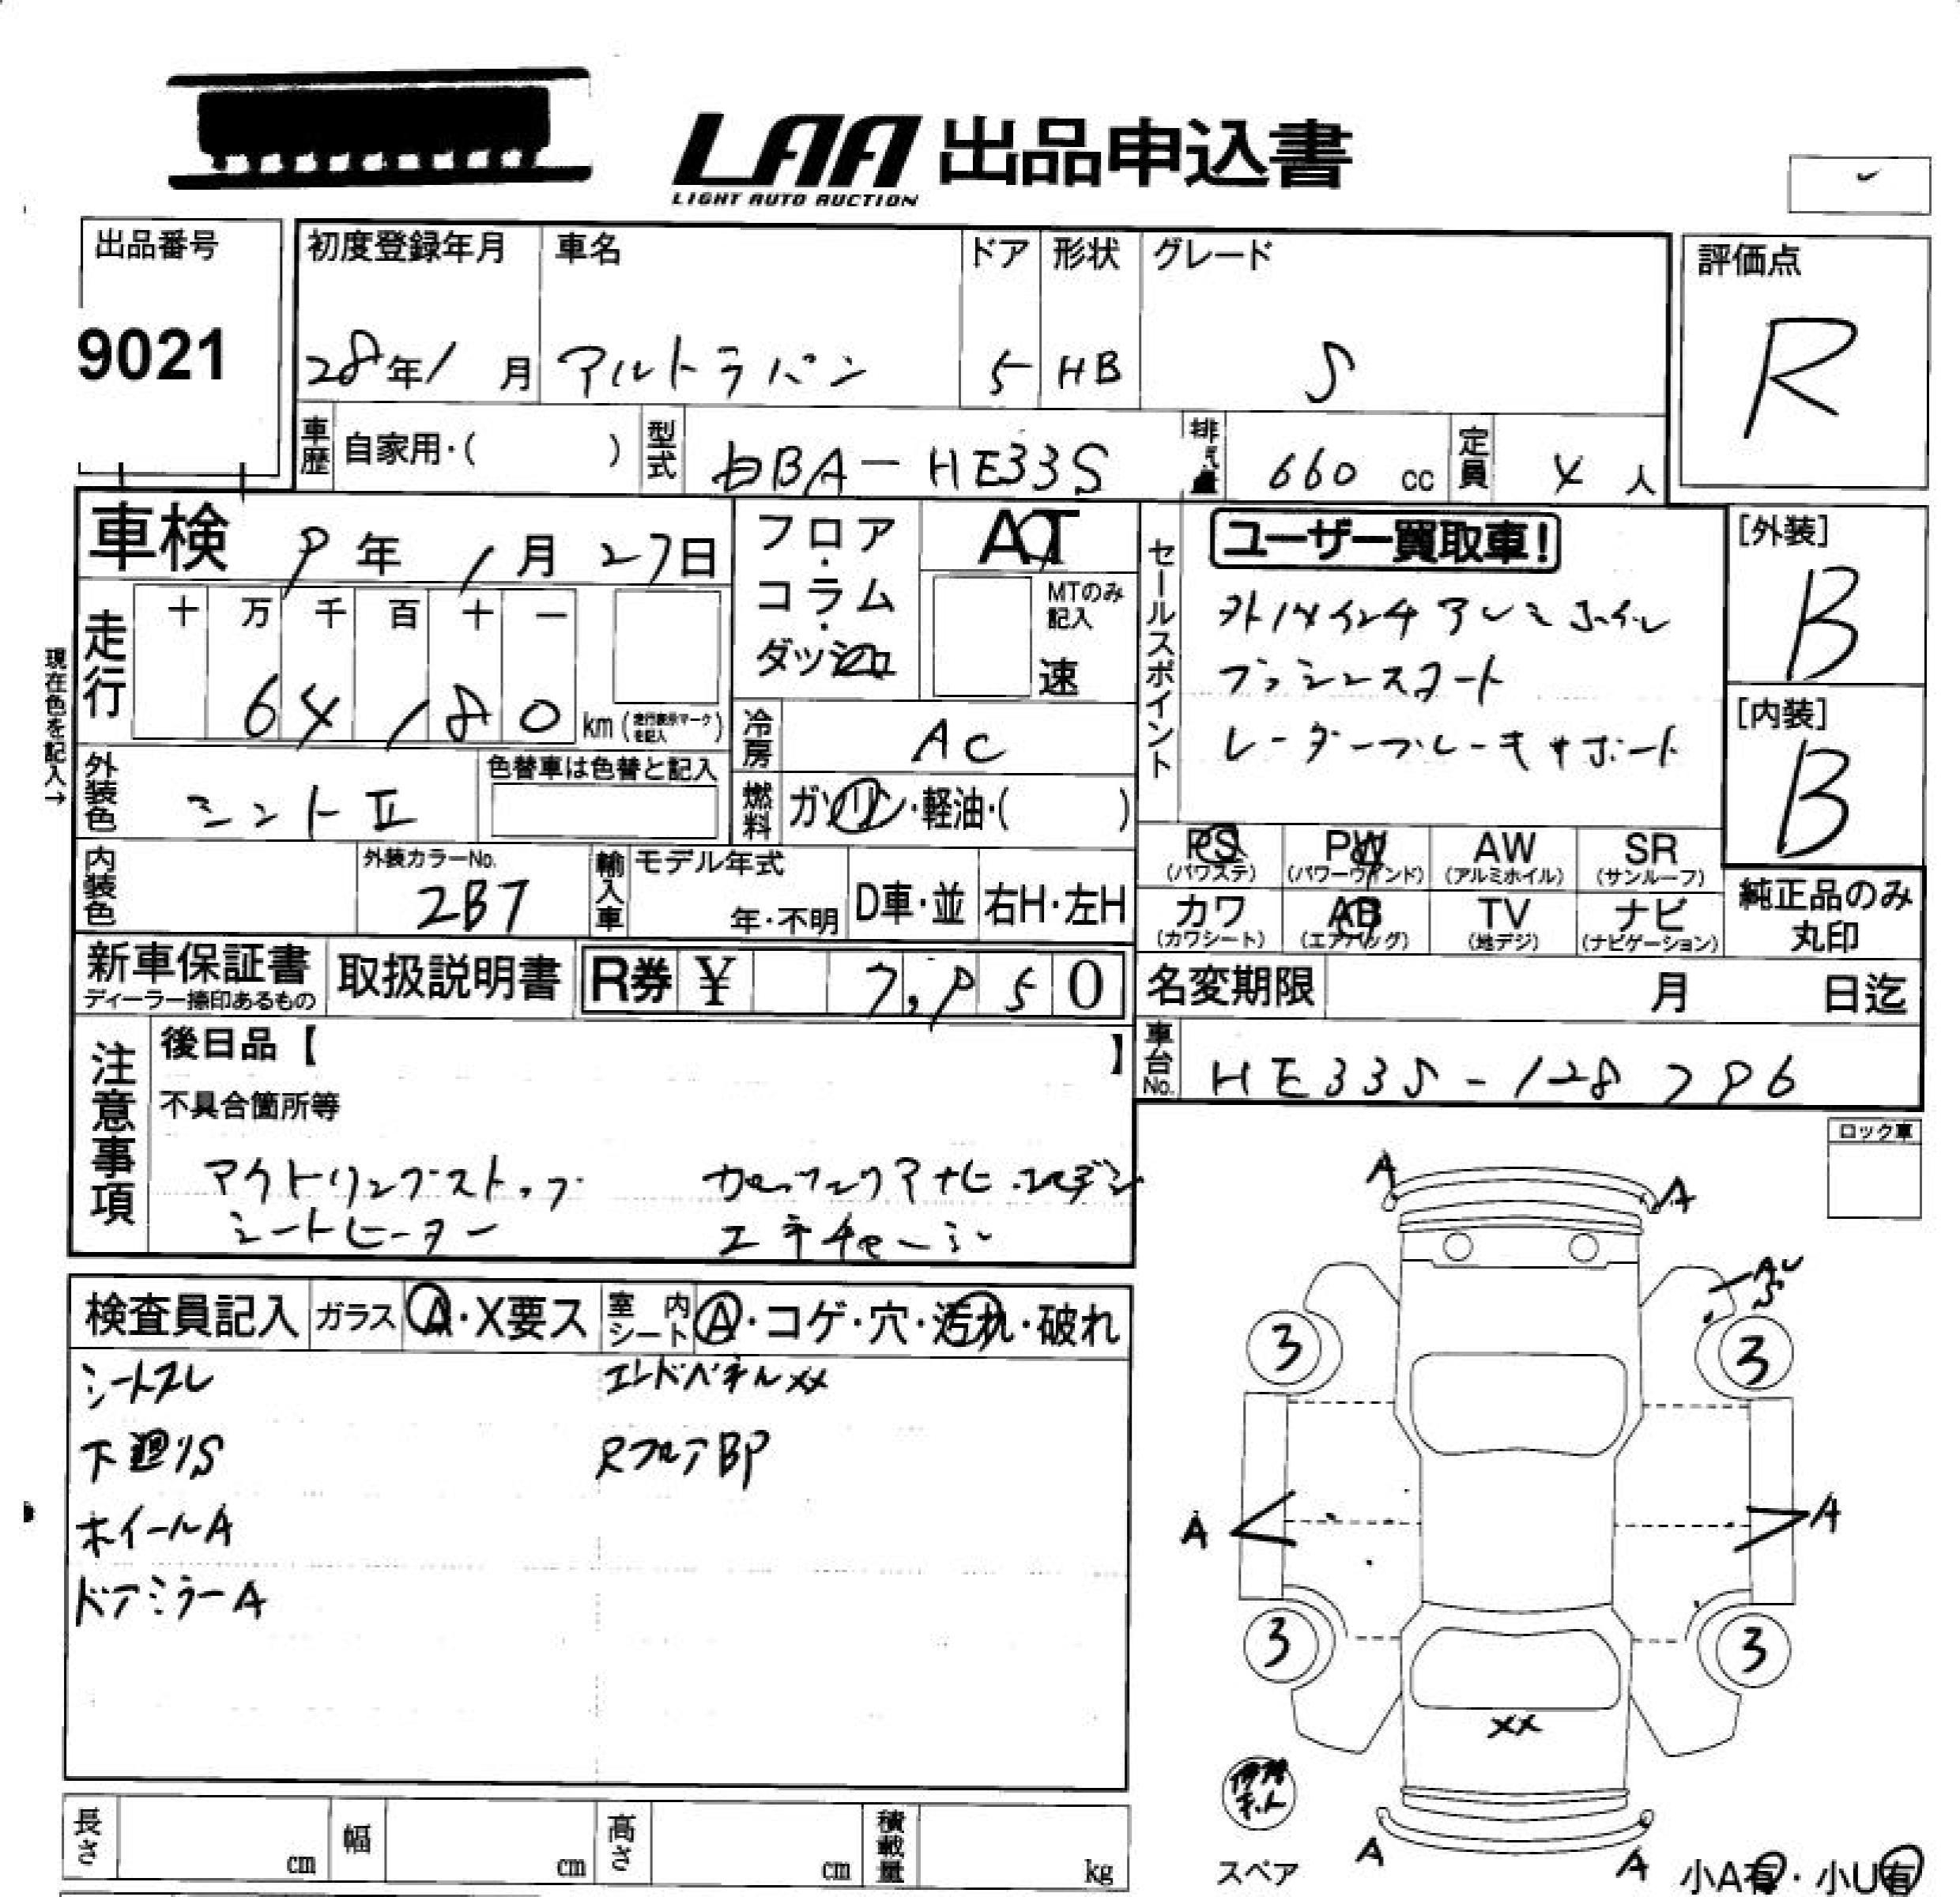 LAA 出品申込書
LIGHT AUTO AUCTION
出品番号
9021
初度登録年月 車名 ドア 形状 グレード
28年1月 アルトラパン 5 HB S
評価点
R
車歴 自家用・( ) 型式 DBA-HE33S 排気量 660 cc 定員 4 人
車検 9年 1月 27日
フロア・コラム・ダッシュ
AT
MTのみ記入
速
セールスポイント
ユーザー買取車!
14インチアルミホイール
プッシュスタート
レーダーブレーキサポート
[外装]
B
[内装]
B
現在色を記入→
走行 十 万 千 百 十 一
64180 km (走行表示マークを記入)
冷房 AC
外装色 ミントⅡ 色替車は色替と記入
燃料 ガソリン・軽油・( )
内装色 外装カラーNo. 2B7
輸入車 モデル年式 年・不明 D車・並 右H・左H
PS (パワステ) PW (パワーウインド) AW (アルミホイル) SR (サンルーフ)
カワ (カワシート) AB (エアバッグ) TV (地デジ) ナビ (ナビゲーション)
純正品のみ丸印
新車保証書 ディーラー捺印あるもの 取扱説明書 R券 ¥ 7,950
名変期限 月 日迄
車台No. HE33S-128796
注意事項
後日品【 】
不具合箇所等
アイドリングストップ
シートヒーター エネチャージ
ロック車
検査員記入 ガラス A・X要ス 室内シート A・コゲ・穴・汚れ・破れ
シートスレ エンドパネルXX
下廻りS RフロアBP
ホイールA
ドアミラーA
A A
3 3
A A
3 3
XX
A A
スペア
小A有・小U有
長さ cm 幅 cm 高さ cm 積載量 kg